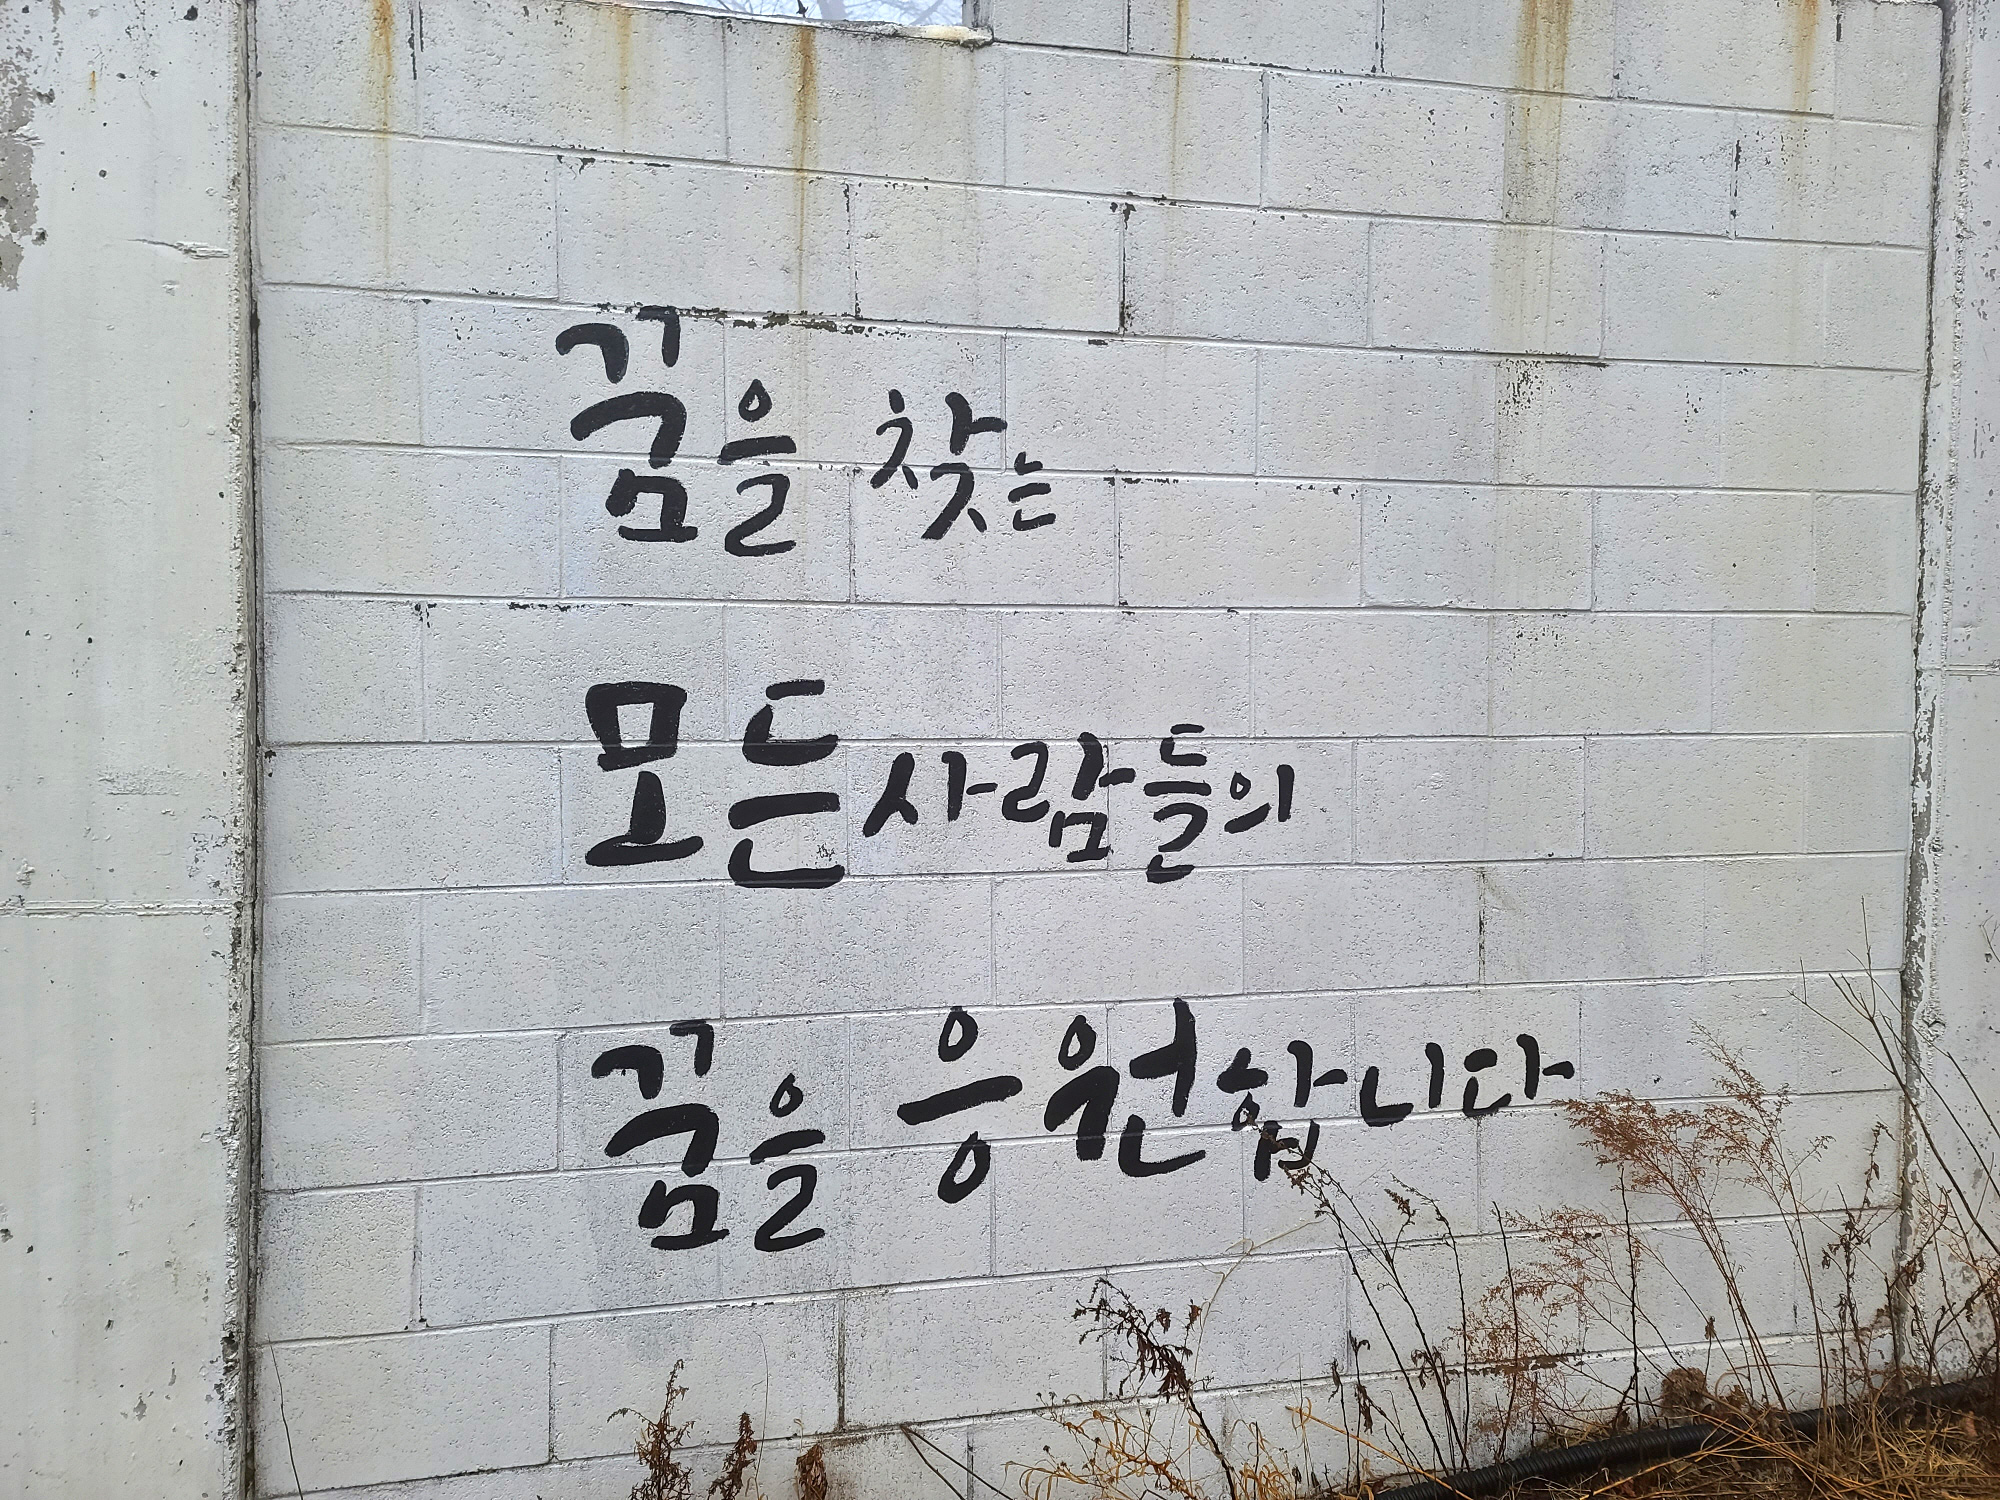 꿈을 찾는
모든 사람들의
꿈을 응원합니다